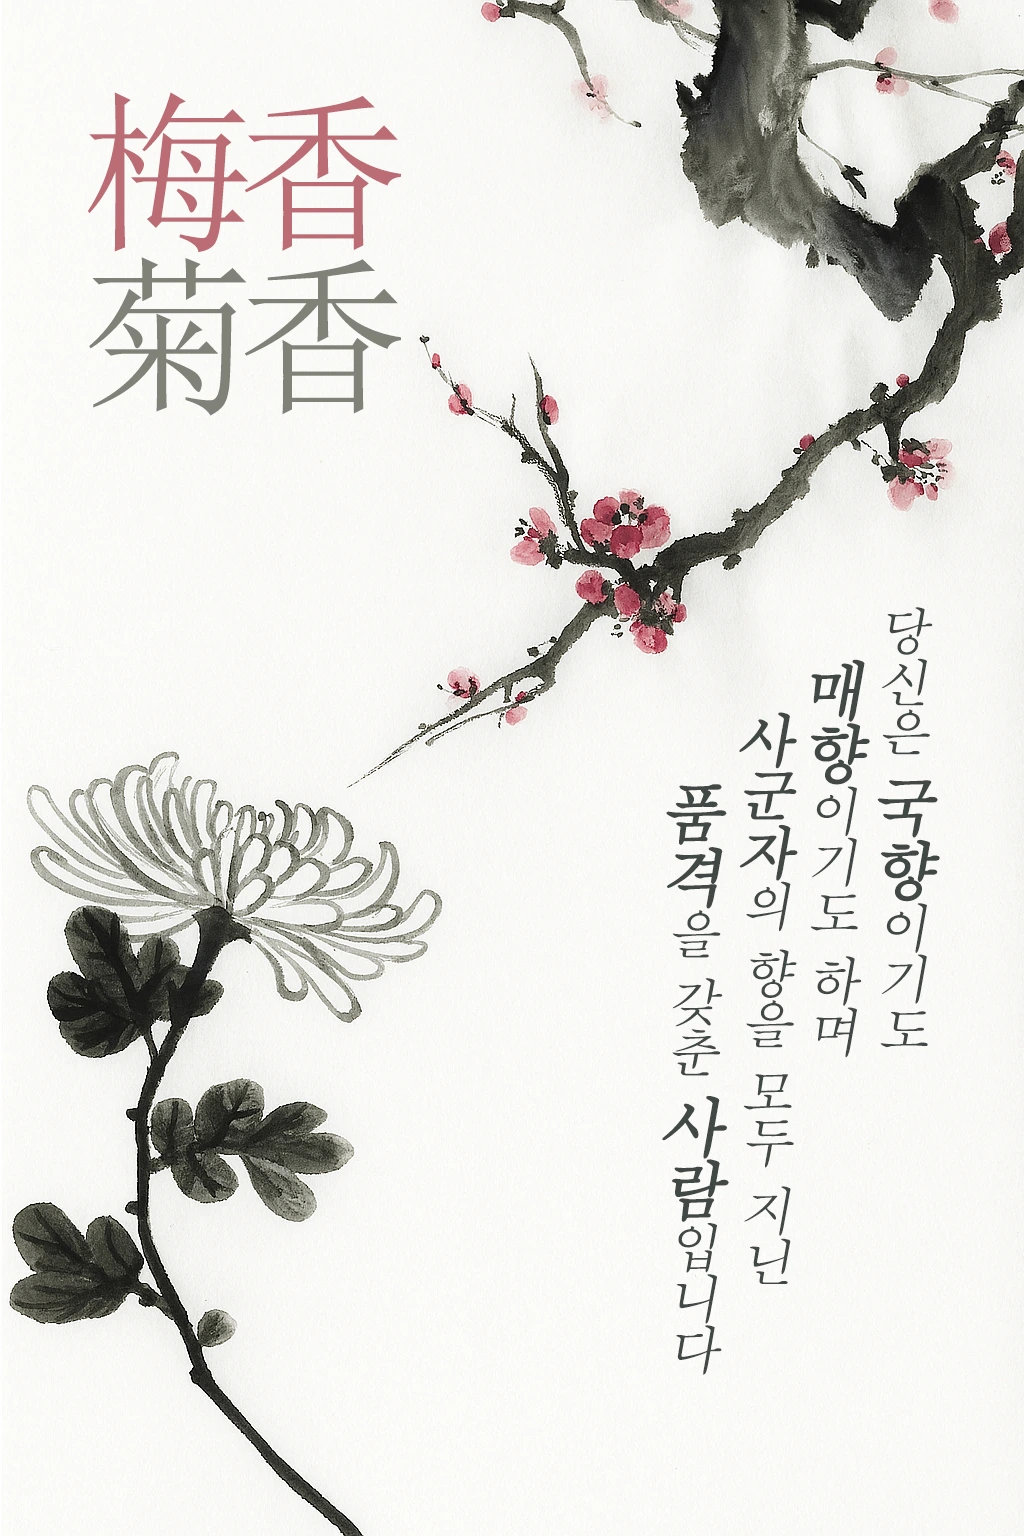 梅香
菊香
당신은 국향이기도
매향이기도 하며
사군자의 향을 모두 지닌
품격을 갖춘 사람입니다